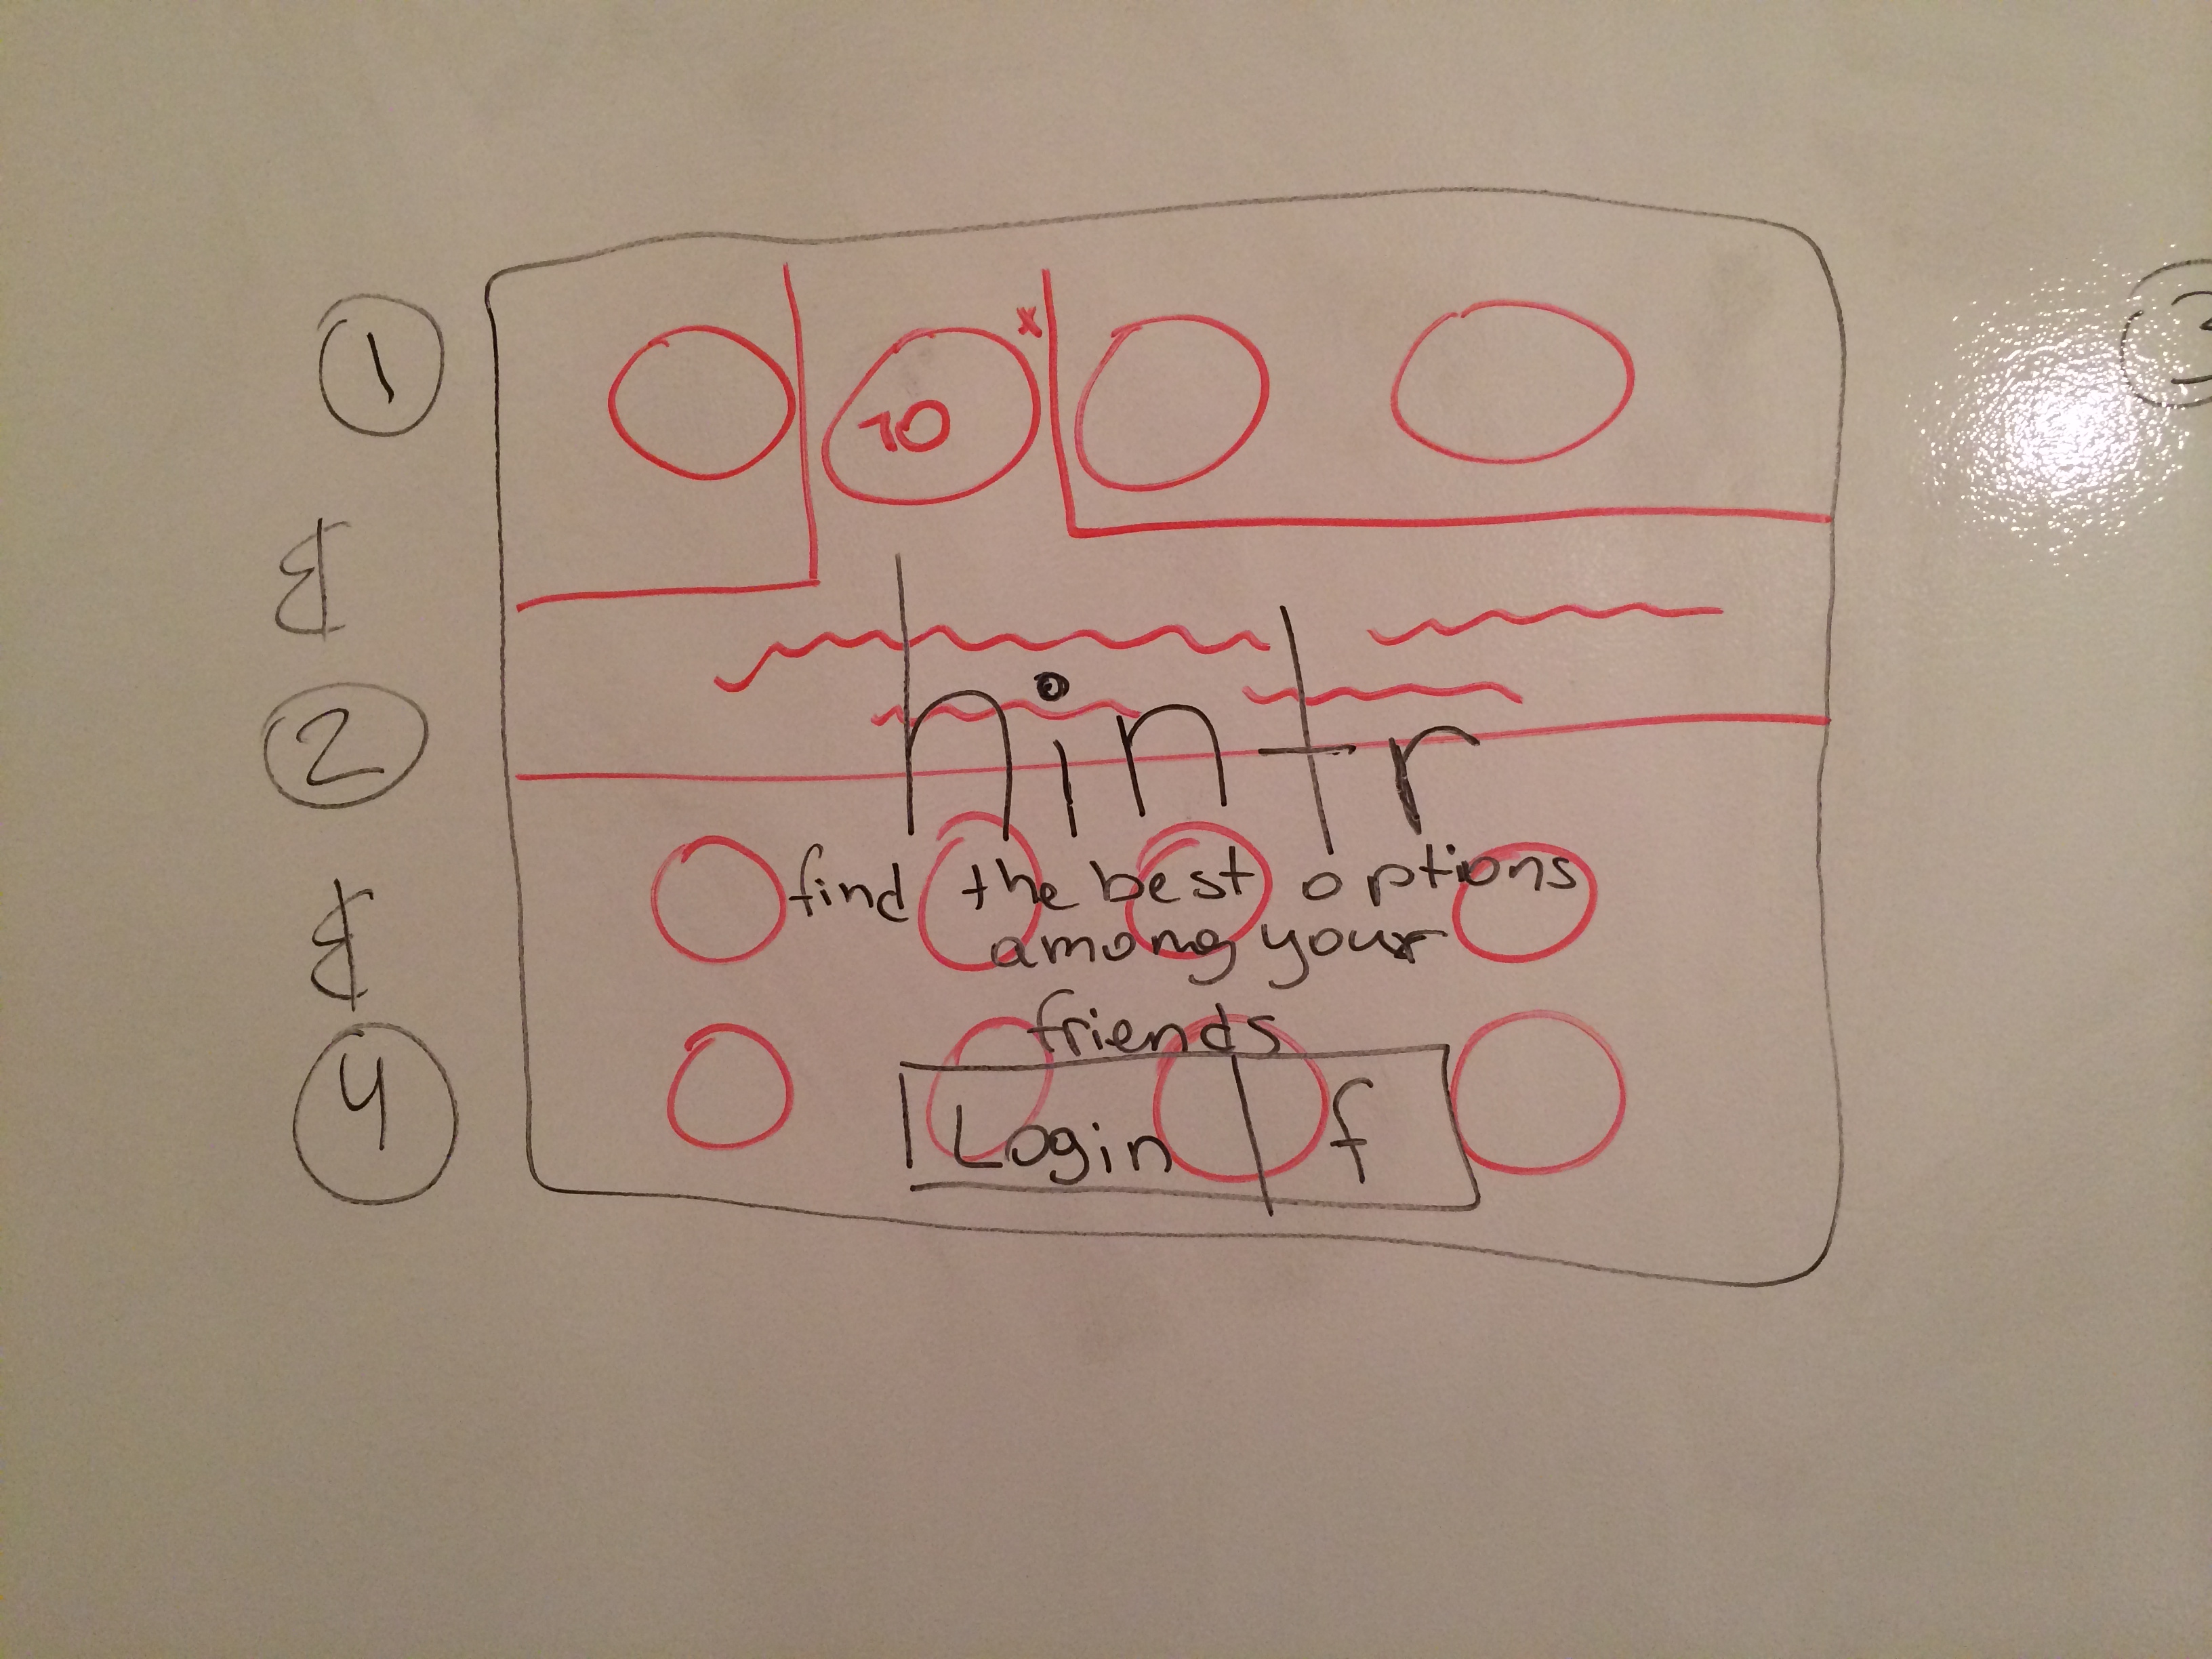 1
10
x
3
&
hintr
2
find the best options
among your
friends
&
4
Login f